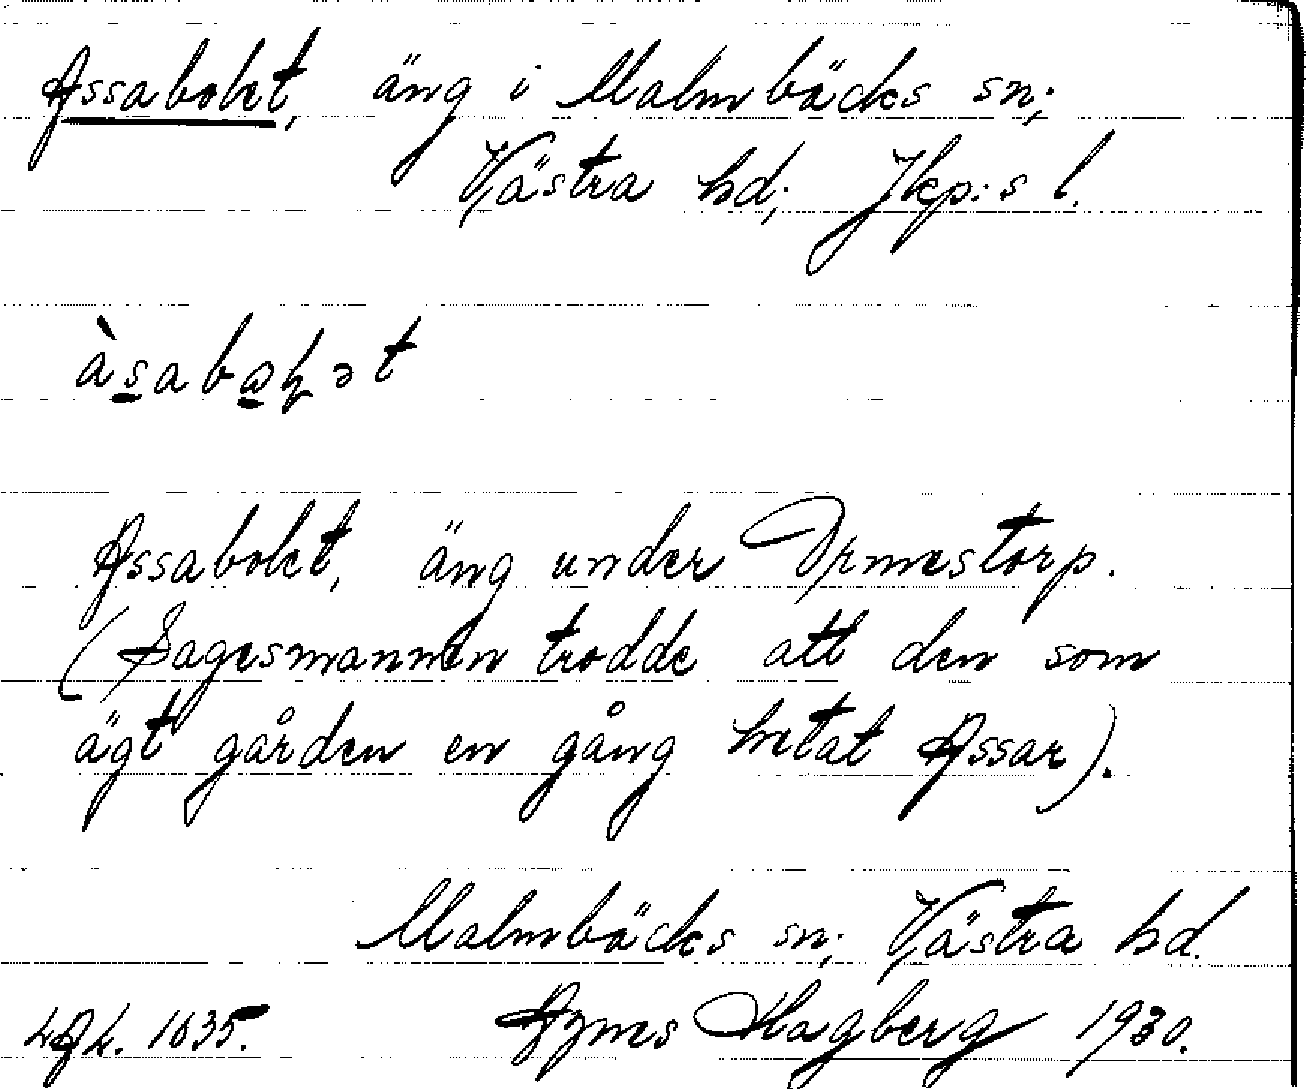 Assabolet, äng i Malmbäcks sn;
Västra hd; Jkp:s l.
Assabolet, äng under Ormestorp.
(Sagesmannen trodde att den som
ägt gården en gång hetat Assar).
Malmbäcks sn; Västra hd.
1635. Agnes Hagberg 1930.